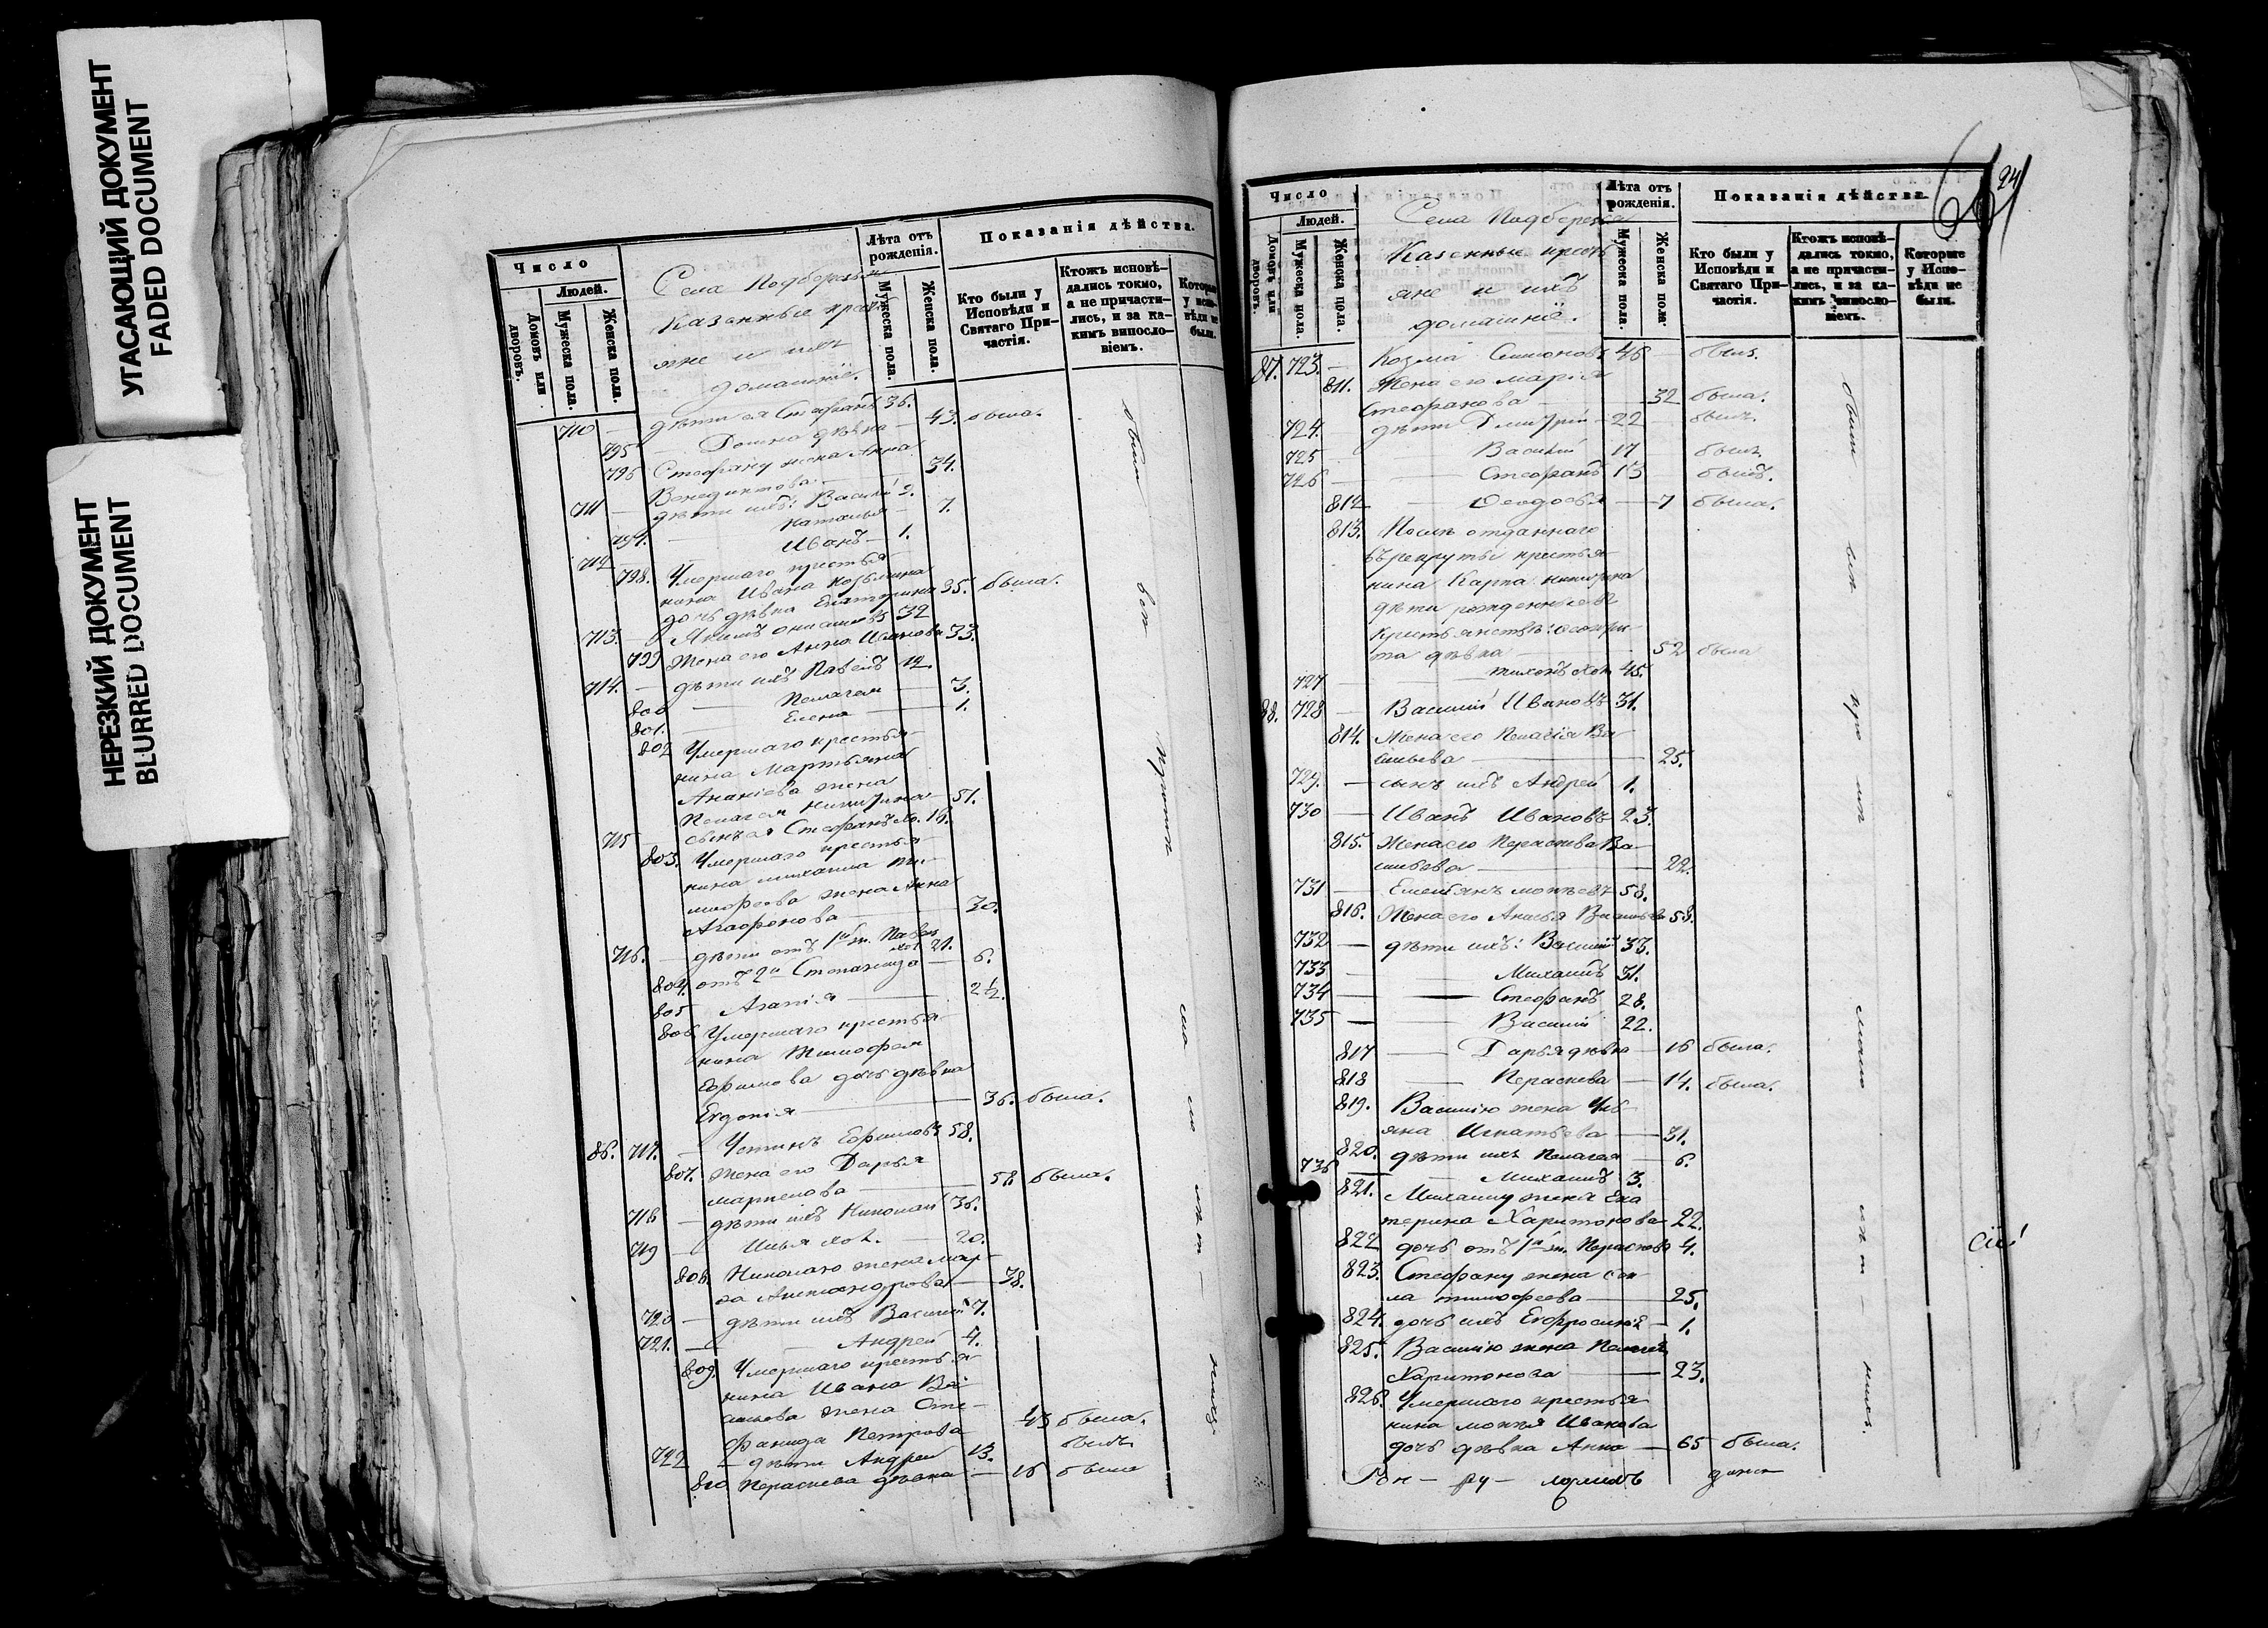 УГАСАЮЩИЙ ДОКУМЕНТ
FADED DOCUMENT
НЕРЕЗКИЙ ДОКУМЕНТ
BLURRED DOCUMENT
Число
Людей.
Домовъ или дворовъ.
Мужеска пола.
Женска пола.
Села Подберезья
Казенные крестья
яне и ихъ
домашніе.
Лѣта отъ рожденія.
Мужеска пола.
Женска пола.
Показанія дѣйства.
Кто были у Исповѣди и Святаго Причастія.
Ктожъ исповѣдались токмо, а не причастились, и за какимъ винословіемъ.
710 — дѣти ея Стефанъ 36.
795 — Домна дѣвка — 43. была.
796 Стефану жена Анна
Венедиктова — 34.
711 — дѣти ихъ: Василій 9.
797. — Наталья — 7.
712 — Иванъ — 1.
798. Умершаго крестья-
нина Ивана Козьмина
дочь дѣвка Екатерина 35. была.
713. — Якимъ 32
799 Жена его Анна Иванова 33.
714. — дѣти ихъ Павелъ 12.
800 — Пелагея — 3.
801. — Елена — 1.
802 Умершаго крестья-
нина Мартьяна
Ананіева жена
Пелагея Никитина — 51.
715 сынъ ея Стефанъ хо. 19.
803. Умершаго крестья-
нина Михаила Ти-
мофеева жена Анна
Агафонова — 30.
716. — дѣти отъ 1й ж. Павелъ хол 21.
804. отъ 2й Степанида — 6.
805 Агапія — 2½.
806 Умершаго крестья-
нина Тимофея
Ефимова дочь дѣвка
Евдокія — 36. была.
86. 717. — Устинъ Ефимовъ 58.
807. Жена его Дарья
— 58 была.
718 — дѣти ихъ Николай 36.
719 — Илья хол. — 20.
808. Николаю жена Мар-
ѳа Александрова — 38.
720 — дѣти ихъ Василій 7.
721. — Андрей 4.
809. Умершаго крестья-
нина Ивана Ва-
сильева жена Сте-
фанида Петрова 43 была.
722 — дѣти Андрей 13. былъ
810 Параскева дѣвка — 16 была
были
сло
24
Число
Людей.
Домовъ или дворовъ.
Мужеска пола.
Женска пола.
Села Подберезья
Казенные кресть
яне и ихъ
домашніе.
Лѣта отъ рожденія.
Мужеска пола.
Женска пола.
Показанія дѣйства.
Кто были у Исповѣди и Святаго Причастія.
Ктожъ исповѣдались токмо, а не причастились, и за какимъ винословіемъ.
Которые у Исповѣди не были.
87. 723. — Козма Симоновъ 46 — былъ.
811. Жена его Марія
Стефанова — 32 была.
724. — дѣти Дмитрій — 22 былъ.
725 — Василій 17 былъ
726 — Стефанъ 13 былъ.
812 — Ѳеодосья — 7 была.
813. Послѣ отданнаго
въ рекруты крестья-
нина Карпа Никитина
дѣти рожденные въ
крестьянствѣ:
дѣвка — 52 была
727 — Тихонъ хол 45.
88. 728 — Василій Ивановъ 31.
814. Жена его Пелагія Ва-
сильева — 25.
729. — сынъ ихъ Андрей 1.
730 — Иванъ Ивановъ 23.
815. Жена его Параскева Ва-
сильева — 22.
731 — Емельянъ 58.
816. Жена его Анисья Васильева 58.
732 — дѣти ихъ: Василій 33.
733 — Михаилъ 31.
734 — Стефанъ 28.
735 — Василій 22.
817 — Дарья дѣвка — 16 была.
818 — Параскева — 14. была.
819. Василію жена Уль-
яна Игнатьева — 31.
820. дѣти ихъ Пелагея — 6.
736 — Михаилъ 3.
821. Михаилу жена Ека
терина Харитонова 22.
822 дочь отъ 1й ж. Параскева 4.
823. Стефану жена
Тимофеева — 25.
824. дочь ихъ Евфросинія — 1.
825. Василію жена Пелагея
Харитонова — 23.
826. Умершаго крестья-
нина Иванова
дочь дѣвка Анна — 65 была.
были